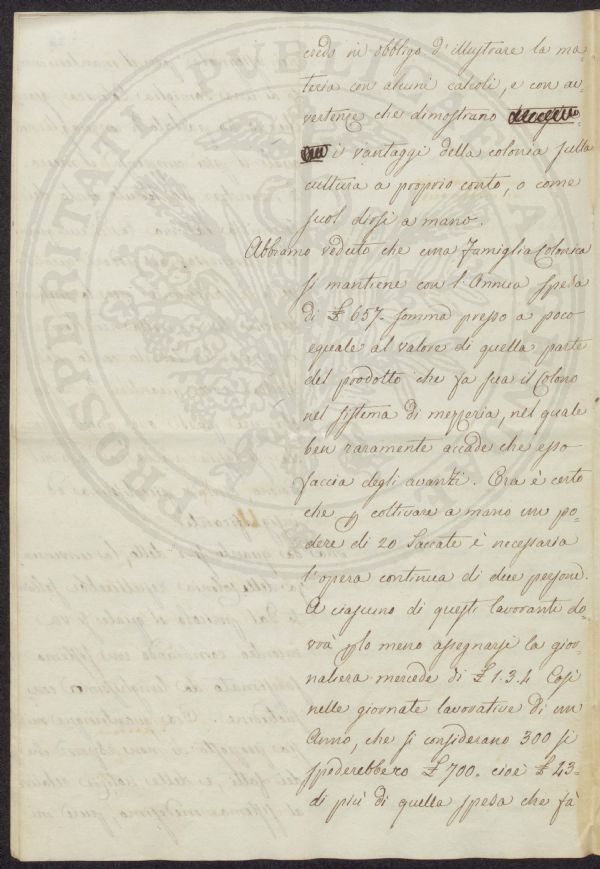 credo in obbligo d'illustrare la ma-
teria con alcuni calcoli, e con av-
vertenze che dimostrano
i vantaggi della colonia sulla
cultura a proprio conto, o come
suol dirsi a mano.
Abbiamo veduto che una famiglia Colonica
si mantiene con l'Annua spesa
di £ 657. somma presso a poco
eguale al valore di quella parte
del prodotto che fa sua il Colono
nel sistema di mezzeria, nel quale
ben raramente accade che esso
faccia degli avanzi. Ora è certo
che p coltivare a mano un po-
dere di 20 Saccate è necessaria
l'opera continua di due persone.
A ciascuno di questi lavoranti do-
vrà plo meno assegnarsi la gior-
naliera mercede di £ 1.3.4 Così
nelle giornate lavorative di un
Anno, che si considerano 300 si
spenderebbero £ 700. cioè £ 43-
di più di quella spesa che fà
PROSPERITATI PUBLICAE